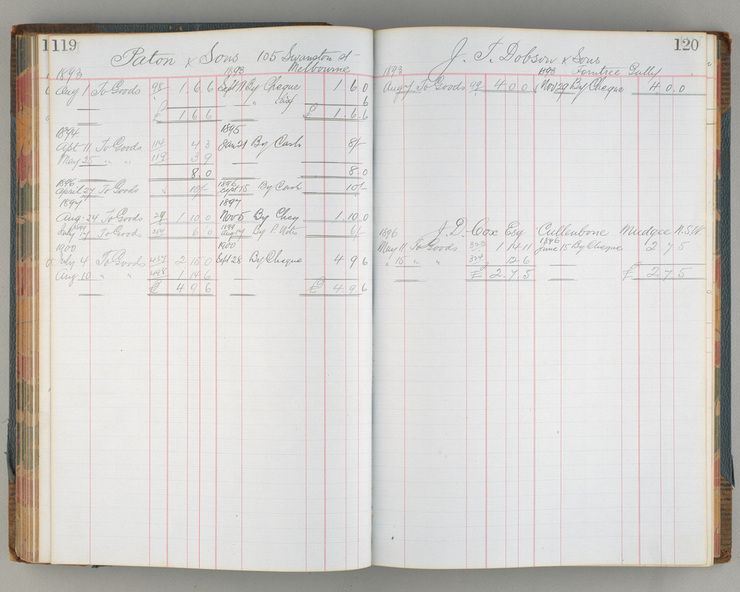 1119
Paton & Sons 105 Swanston st
Melbourne
1893 1893
Aug 1 To Goods 98 1 6 6 Sept 11 By Cheque 1 6 0
" " 6
£ 1 6 6 £ 1 6 6
1894 1895
Sept 11 To Goods 4 3 Jan 21 By Cash 8/-
May 25 " " 119 3 9
8 0 8 0
1896 1896
April 27 To Goods 10/- Sept 15 By Cash 10/-
1897 1897
Aug 24 To Goods 29 1 10 0 Nov 5 By Cheq 1 10 0
July 14 To Goods 6 0 Aug 14 By P. Notes 6/-
1900 1900
July 4 To Goods 2 15 0 Sept 28 By Cheque 4 9 6
Aug 10 " " 1 14 6
£ 4 9 6 £ 4 9 6
120
J. T. Dobson & Sons
1893 1893 Ferntree Gully
Aug 7 To Goods 99 4 0 0 Nov 29 By Cheque 4 0 0
1896 J. D. Cox Esq Cullenbone Mudgee N.S.W
1896
May 11 To Goods 1 14 11 June 15 By Cheque 2 7 5
" 15 " " 12 6
£ 2 7 5 £ 2 7 5